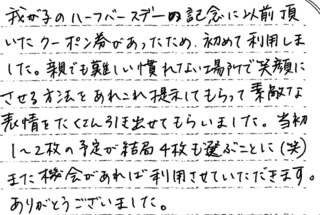 我が子のハーフバースデーの記念に以前頂
いたクーポン券があったため、初めて利用しま
した。親でも難しい慣れない場所で笑顔に
させる方法をあれこれ提示してもらって素敵な
表情をたくさん引き出せてもらいました。当初
1〜2枚の予定が結局4枚も選ぶことに(笑)
また機会があれば利用させていただきます。
ありがとうございました。